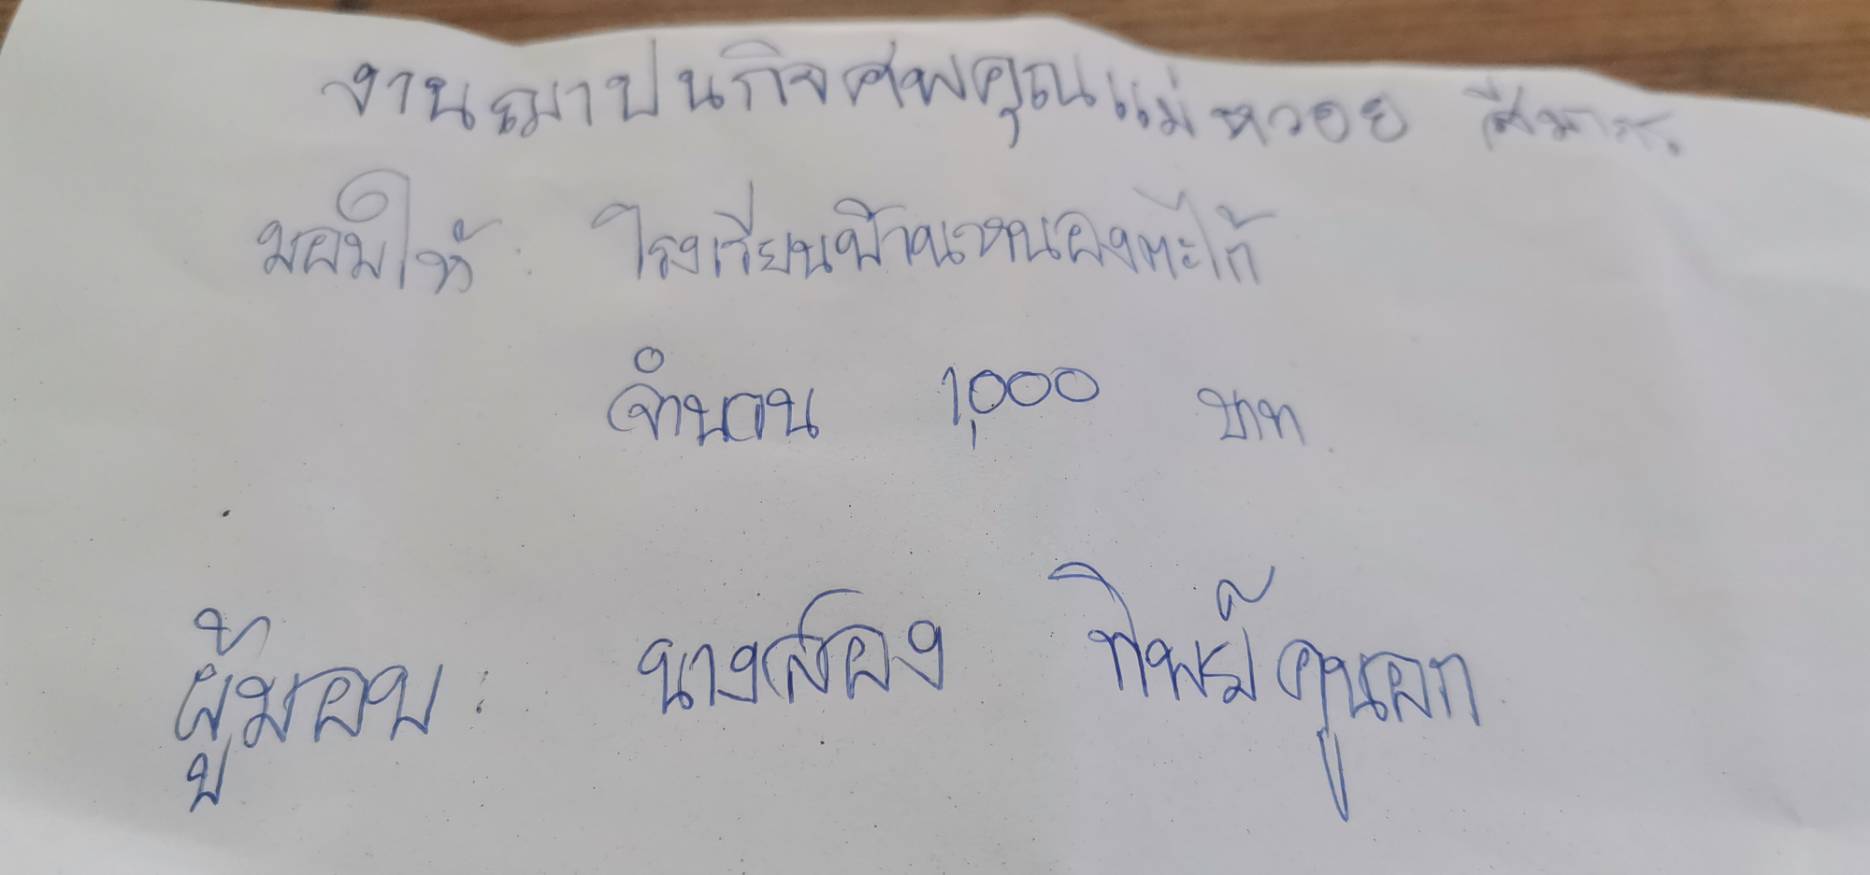 งานฌาปนกิจศพคุณแม่หวอย
มอบให้ : โรงเรียนบ้านหนองตะไก้
จำนวน 1,000 บาท
ผู้มอบ : นางสอง ทิพย์คูนอก